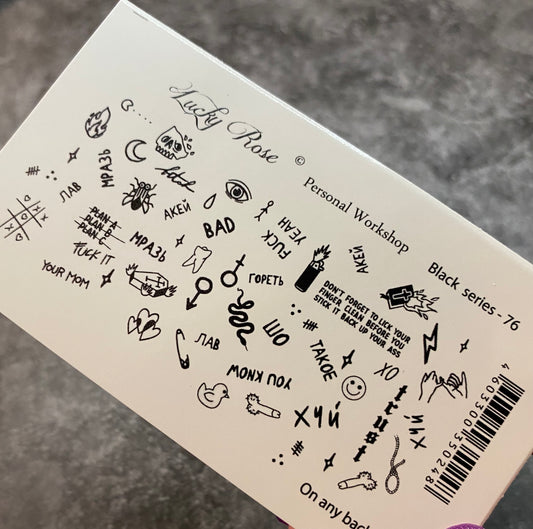 Lucky Rose ©
Personal Workshop
Black series - 76
МРАЗЬ
bitch
ЛАВ
АКЕЙ
BAD
FUCK
YEAH
АКЕЙ
PLAN A
PLAN B
PLAN C
FUCK IT
МРАЗЬ
YOUR MOM
ГОРЕТЬ
DON'T FORGET TO LICK YOUR
FINGER CLEAN BEFORE YOU
STICK IT BACK UP YOUR ASS
ШО
ТАКОЕ
ЛАВ
YOU KNOW
XO
trust
ХУЙ
ХУЙ
4603300350248
On any back